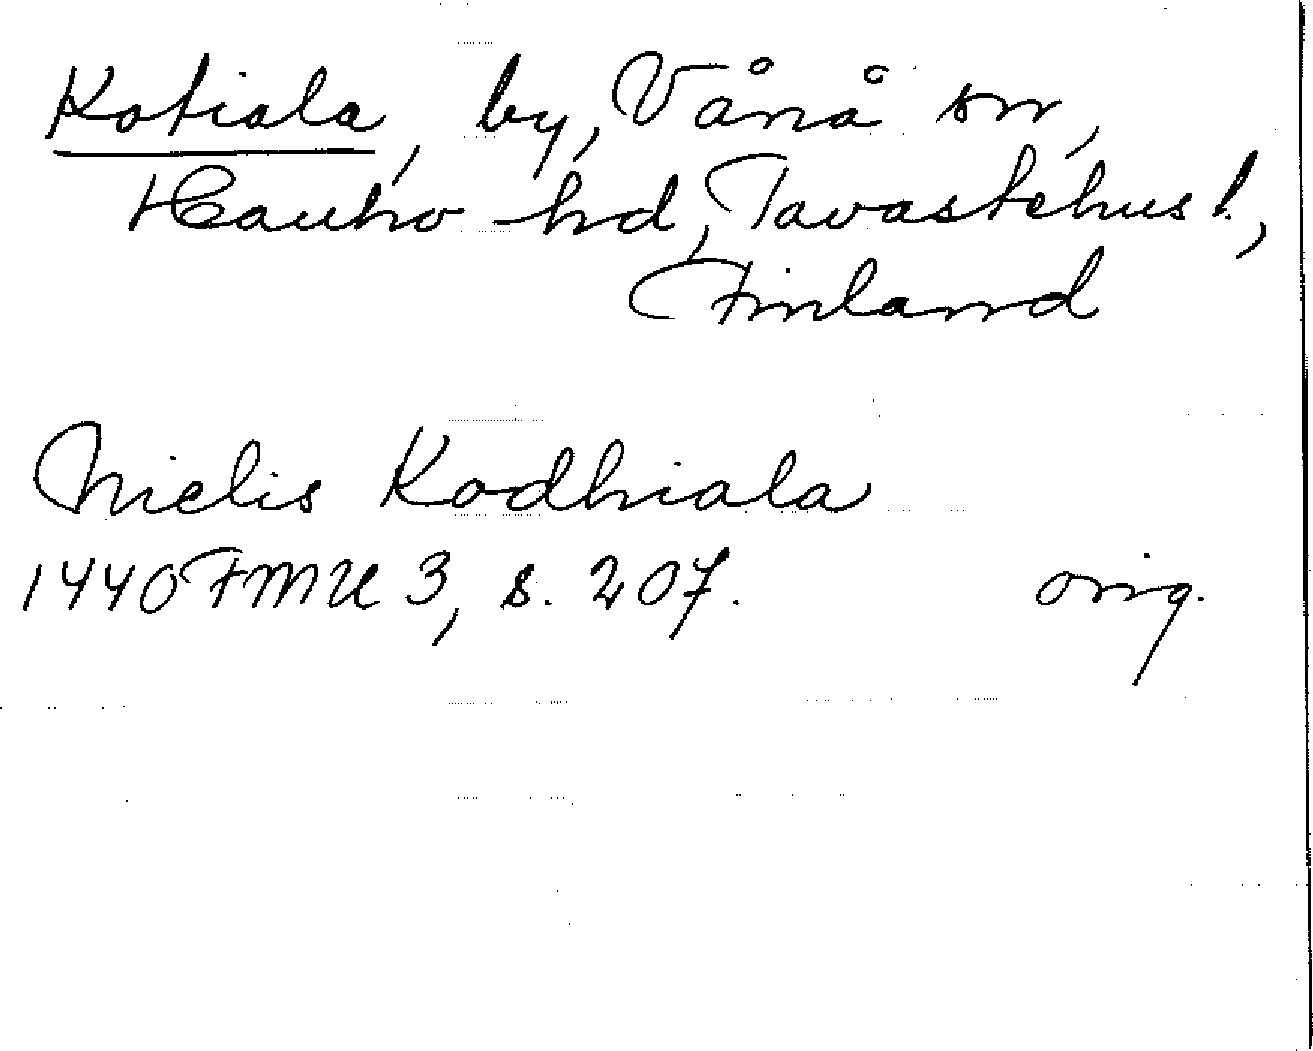 Kotiala, by, Vånå sn,
Hauho hd, Tavastehus l.,
Finland
Nielis Kodhiala
1440 FMU 3, s. 207. orig.